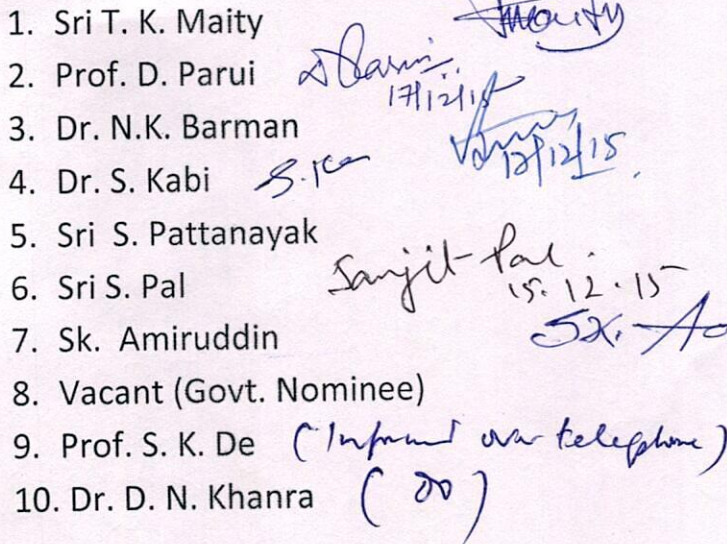 1. Sri T. K. Maity TMaity
2. Prof. D. Parui DParui
17/12/15
3. Dr. N.K. Barman
17/12/15
4. Dr. S. Kabi S. Ka
5. Sri S. Pattanayak
6. Sri S. Pal Sanjit Pal.
15.12.15
7. Sk. Amiruddin SK. A
8. Vacant (Govt. Nominee)
9. Prof. S. K. De (Informed over telephone)
10. Dr. D. N. Khanra (do)